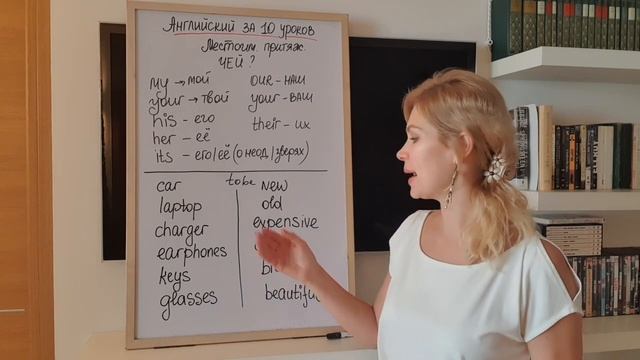 Английский за 10 уроков
Местоим. притяж.
ЧЕЙ?
my → мой
your → твой
his - его
her - её
its - его/её (о неод./зверях)
our - наш
your - ваш
their - их
to be
car
laptop
charger
earphones
keys
glasses
new
old
expensive
beautiful